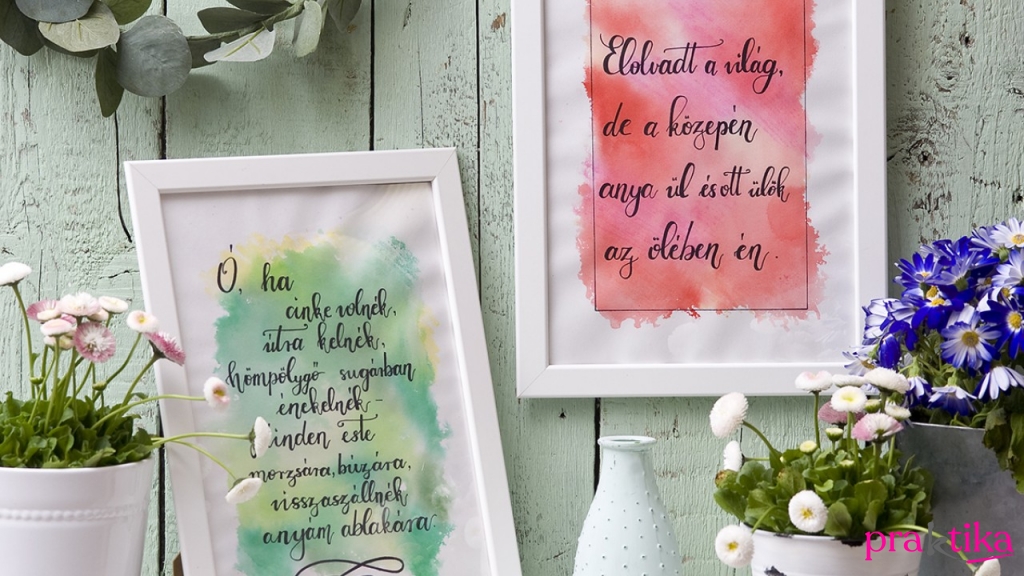 Elolvadt a világ,
de a közepén
anya ül és ott ülök
az ölében én.
Ó, ha
cinke volnék,
útra kelnék,
hömpölygő sugárban
énekelnék -
minden este
morzsára, búzára,
visszaszállnék
anyám ablakára.
praktika